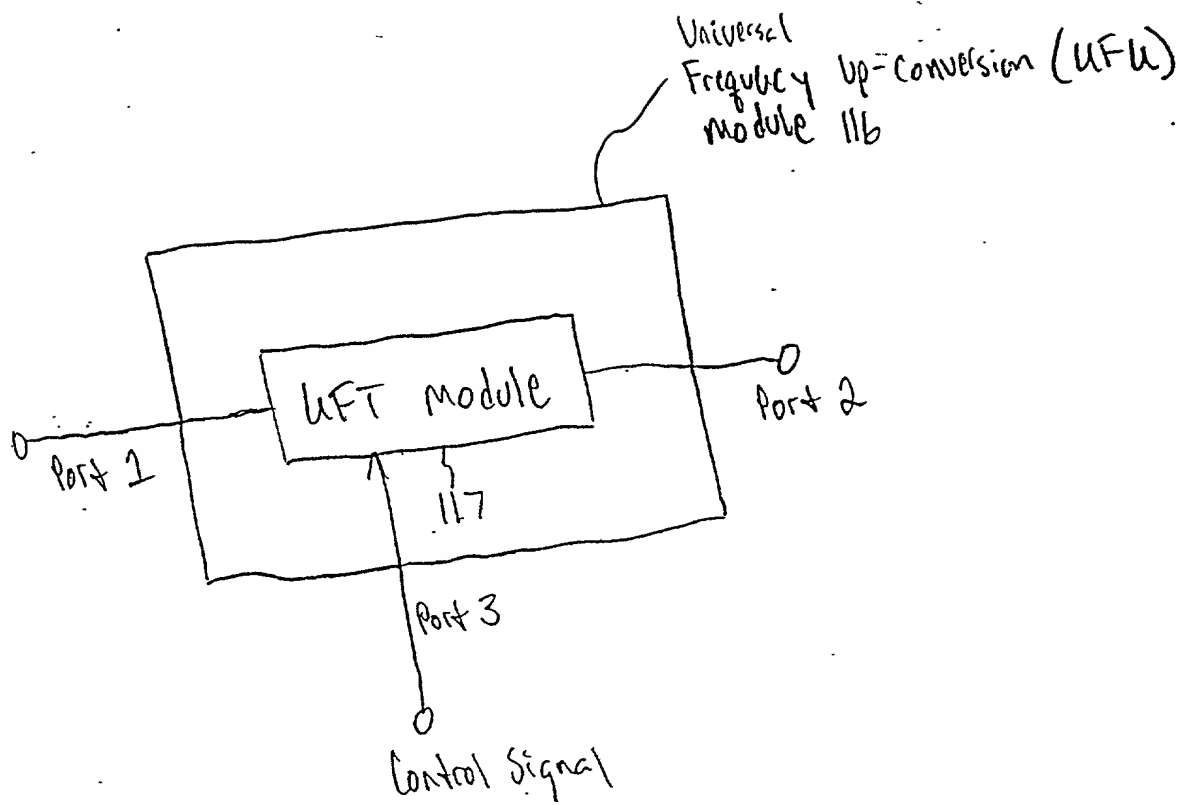 Universal
Frequency Up-Conversion (UFU)
Module 116
UFT Module
Port 1
Port 2
117
Port 3
Control Signal